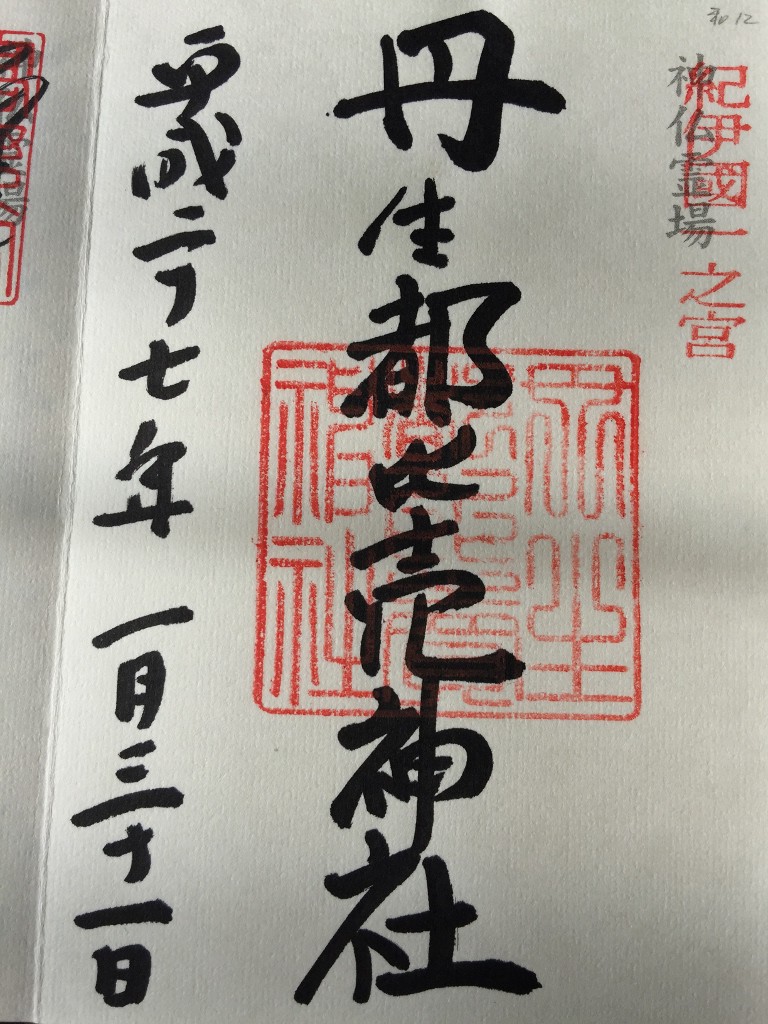 和12
紀伊國一之宮
神仏霊場
丹生都比売神社
丹生
神社
平成二十七年 一月三十一日